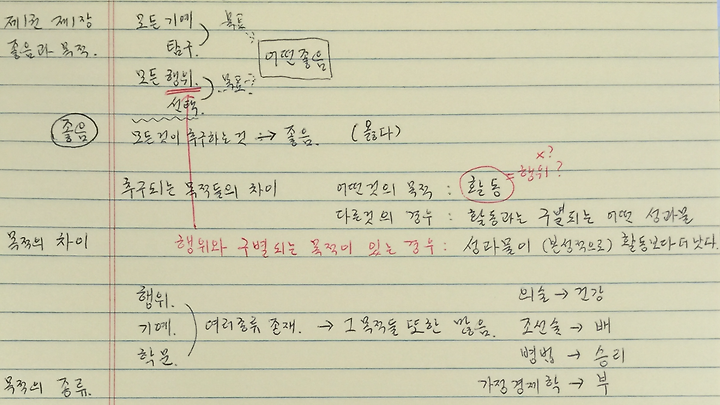 제1권 제1장
좋음과 목적.
모든 기예
탐구.
목표
어떤 좋음
모든 행위.
선택.
목표?
좋음
모든것이 추구하는 것 → 좋음. (옳다)
추구되는 목적들의 차이
어떤것의 목적 : 활동 = 행위?
x?
다른것의 경우 : 활동과는 구별되는 어떤 성과물
목적의 차이
행위와 구별되는 목적이 있는 경우 : 성과물이 (본성적으로) 활동보다 더 낫다.
행위.
기예.
학문.
여러종류 존재. → 그 목적들 또한 많음.
의술 → 건강
조선술 → 배
병법 → 승리
가정경제학 → 부
목적의 종류.